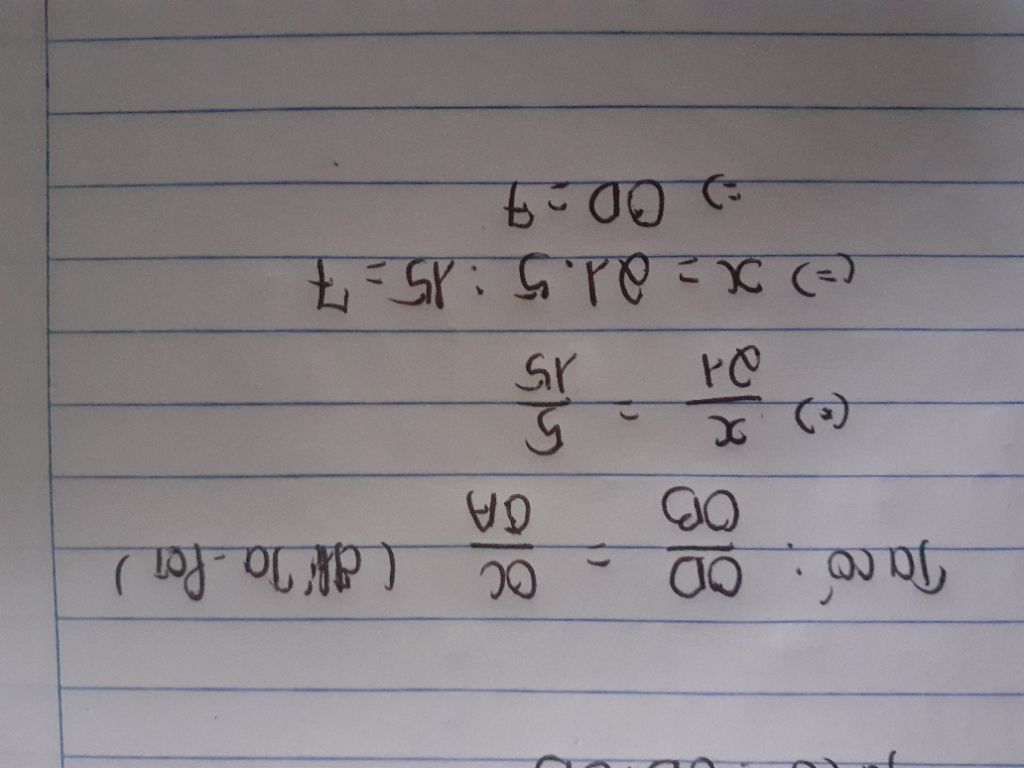 Ta có: OD/OB = OC/OA (Ta-let)
(=) x/21 = 5/15
(=) x = 21.5 : 15 = 7
=) OD = 7